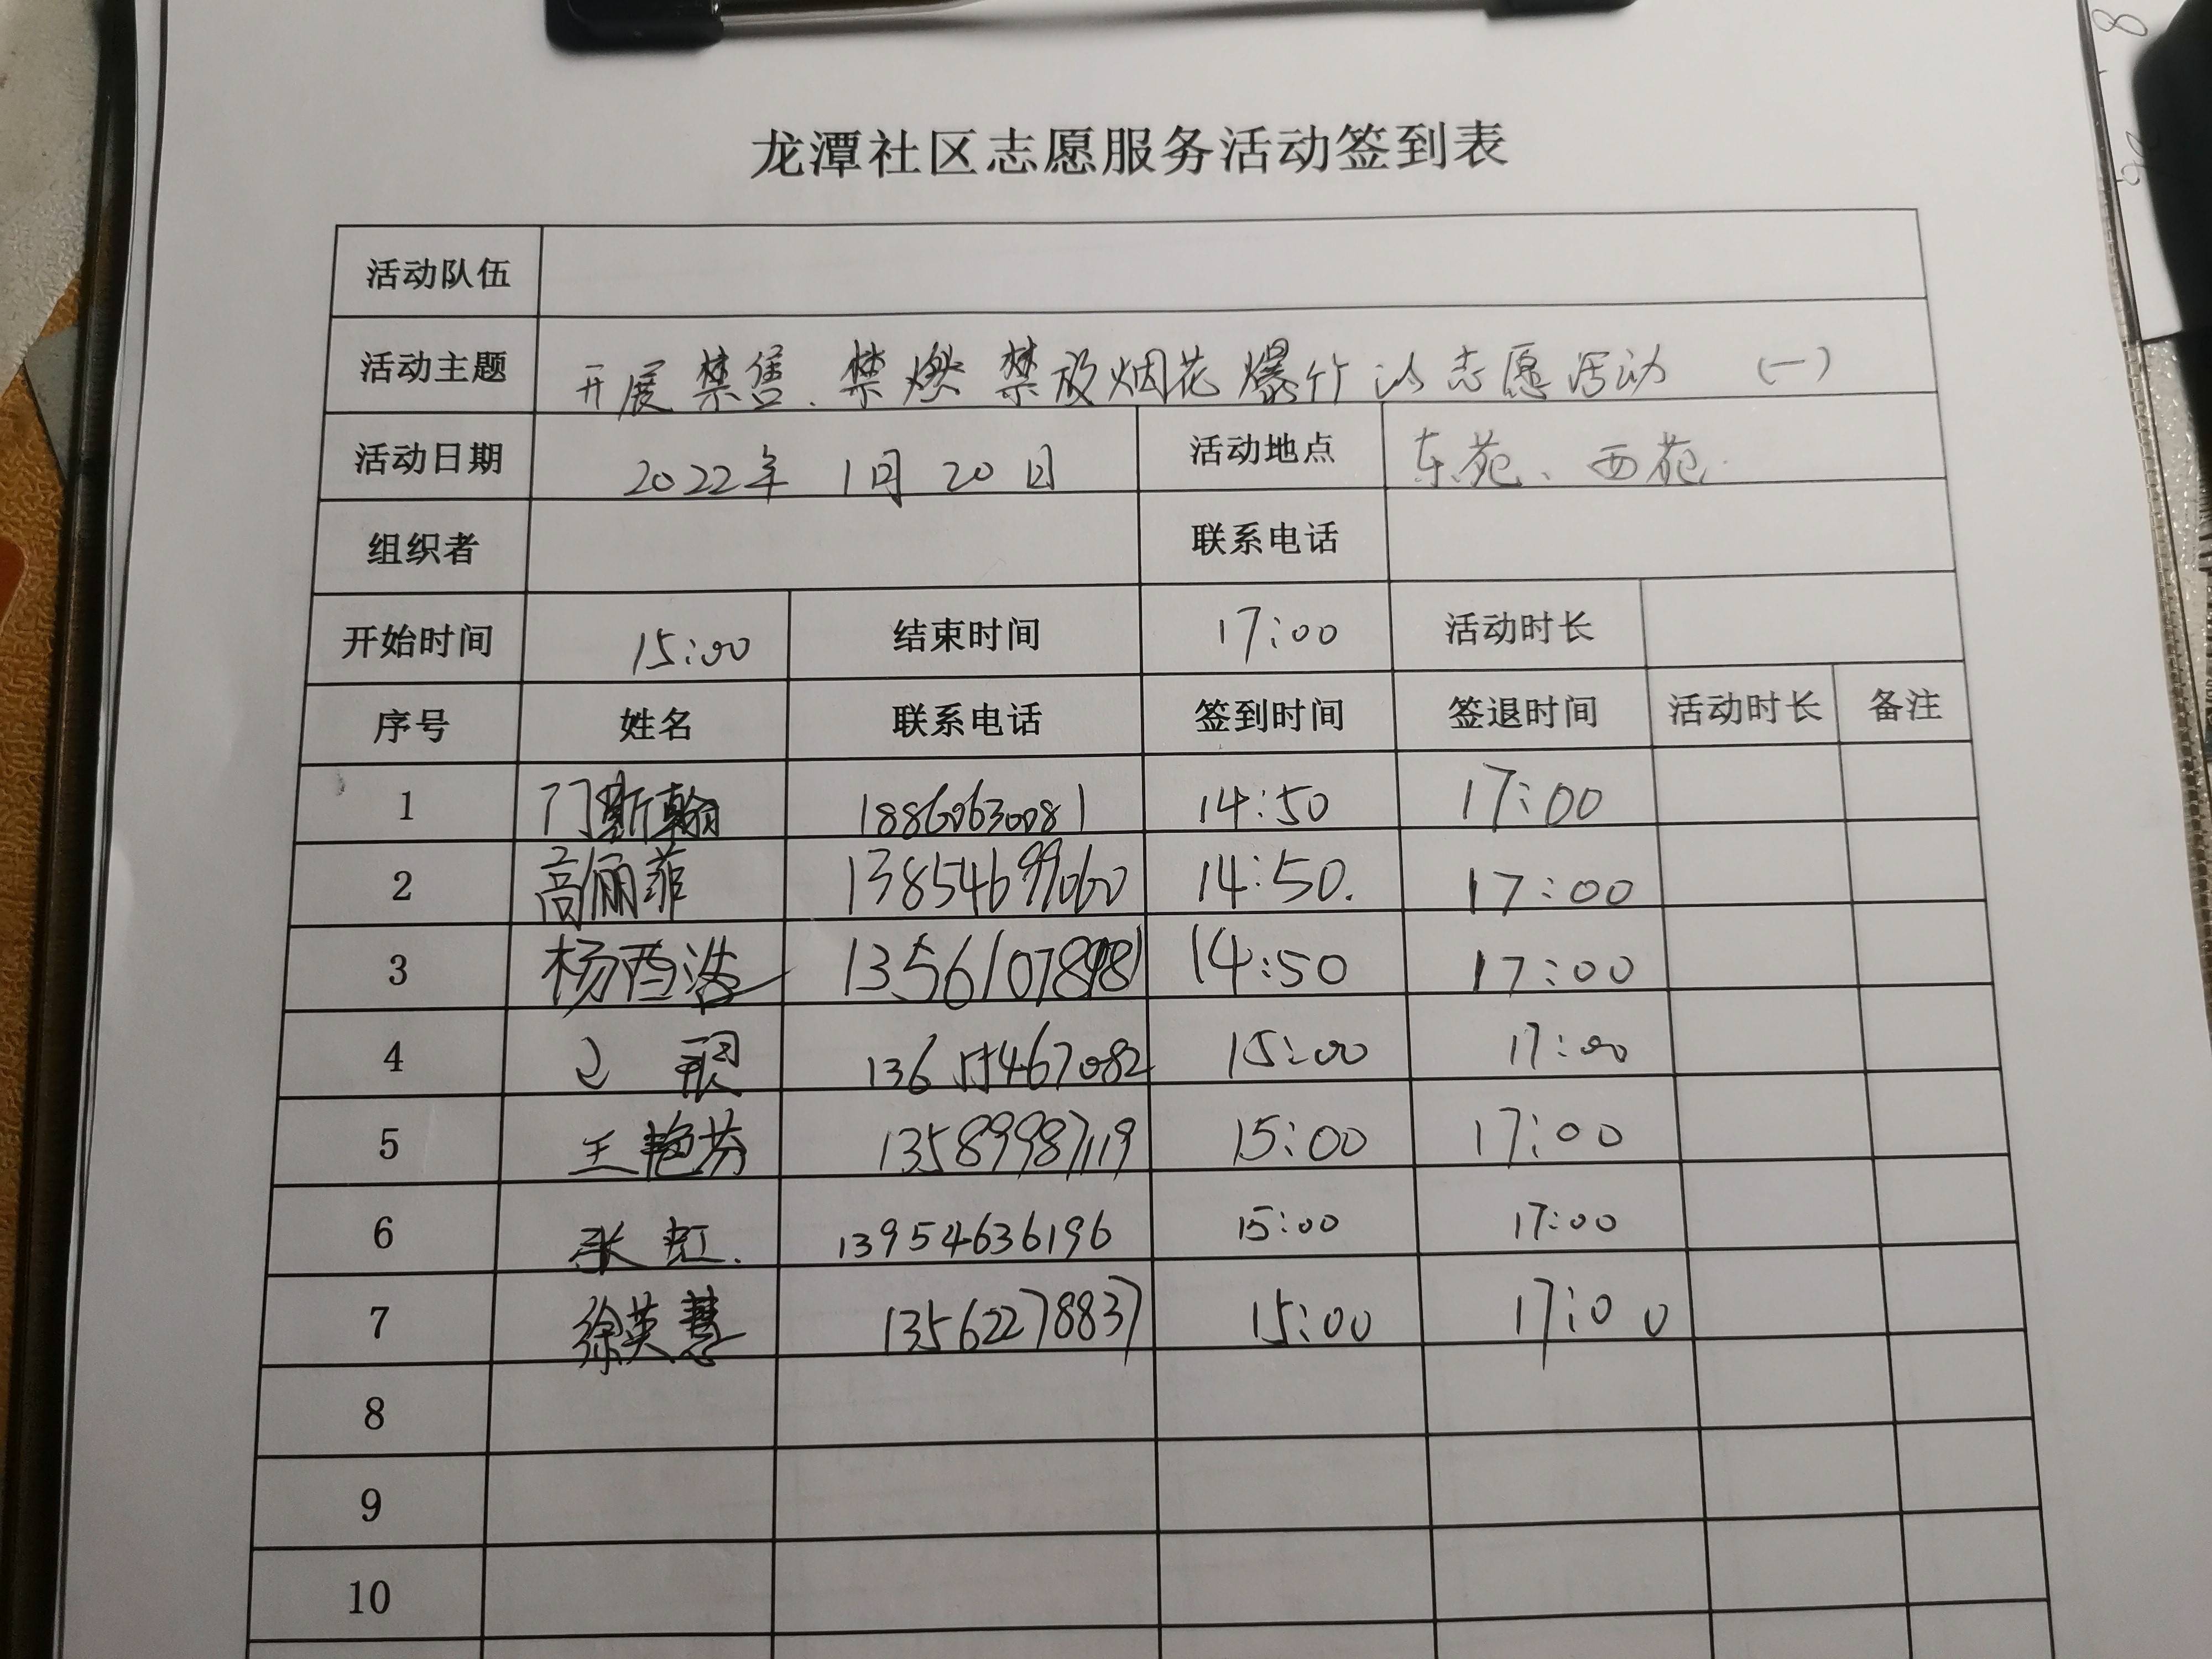 龙潭社区志愿服务活动签到表
活动队伍
活动主题 开展禁售、禁燃禁放烟花爆竹的志愿活动 (一)
活动日期 2022年 1月 20日 活动地点 东苑、西苑
组织者 联系电话
开始时间 15:00 结束时间 17:00 活动时长
序号 姓名 联系电话 签到时间 签退时间 活动时长 备注
1 门斯翰 18860630081 14:50 17:00
2 高俪菲 13854699060 14:50. 17:00
3 杨 浩 14:50 17:00
4 15:00 17:00
5 王艳芬 13589987119 15:00 17:00
6 张虹. 13954636196 15:00 17:00
7 徐英慧 13562278837 15:00 17:00
8
9
10